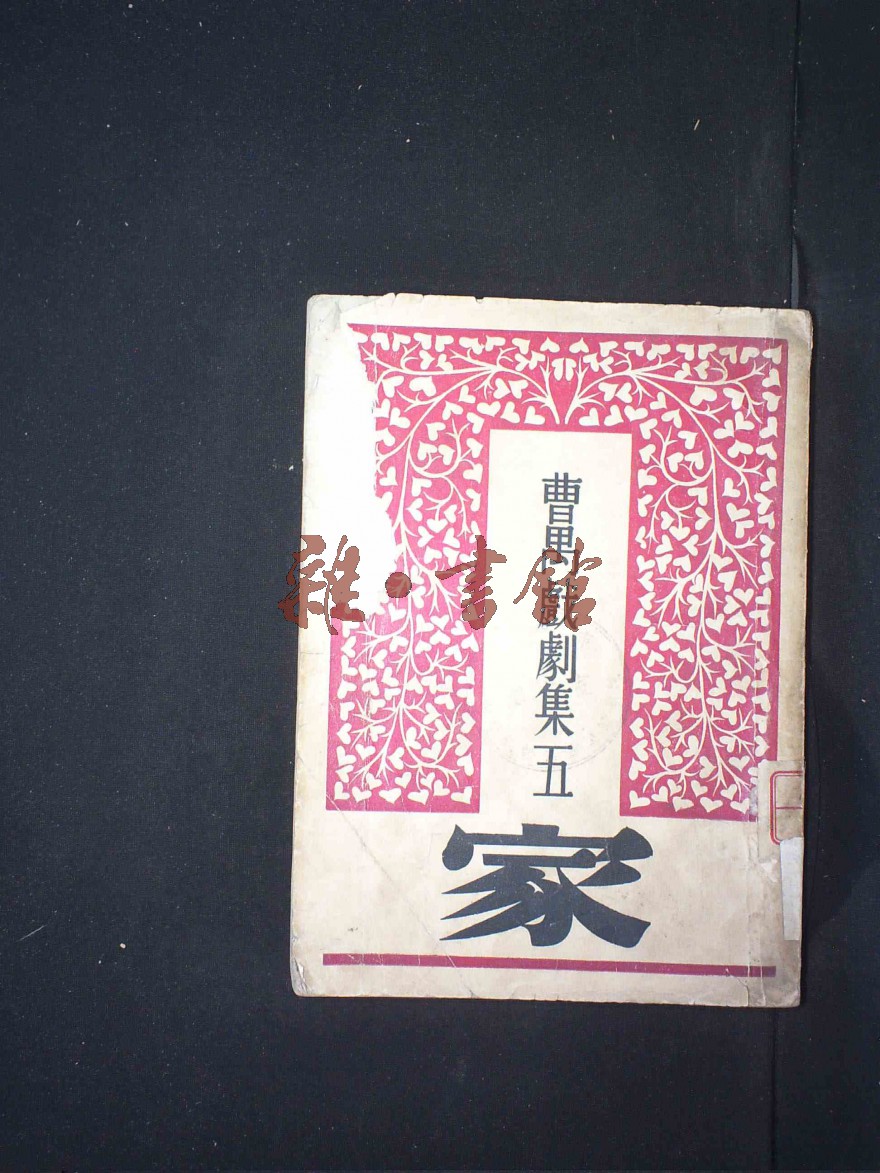 曹禺戲劇集 五
家
雜·書館